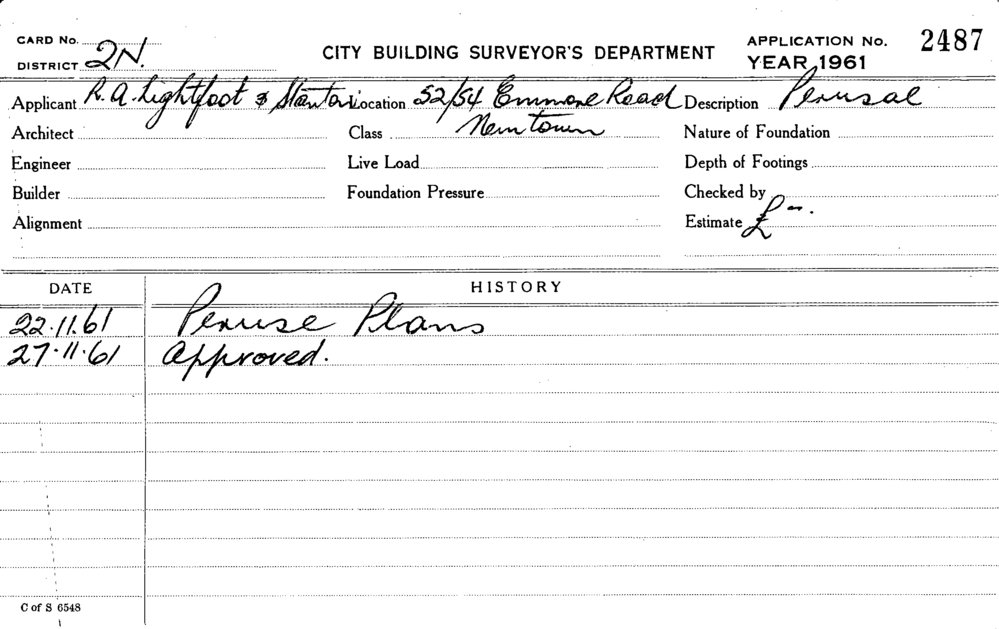 CARD No.
DISTRICT 2N.
CITY BUILDING SURVEYOR'S DEPARTMENT
APPLICATION No. 2487
YEAR, 1961
Applicant R. A. Lightfoot & Stanton Location 52/54 Enmore Road Description Perusal
Architect Class Newtown Nature of Foundation
Engineer Live Load Depth of Footings
Builder Foundation Pressure Checked by
Alignment Estimate £ —.
DATE HISTORY
22.11.61 Peruse Plans
27.11.61 Approved.
C of S 6548